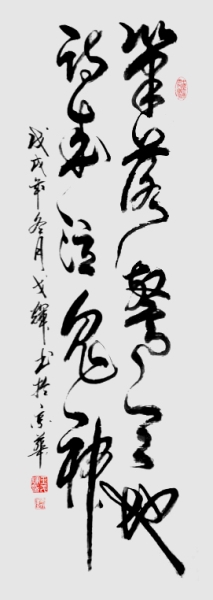 筆落驚天地
詩成泣鬼神
戊戌年冬月戈輝书於京華